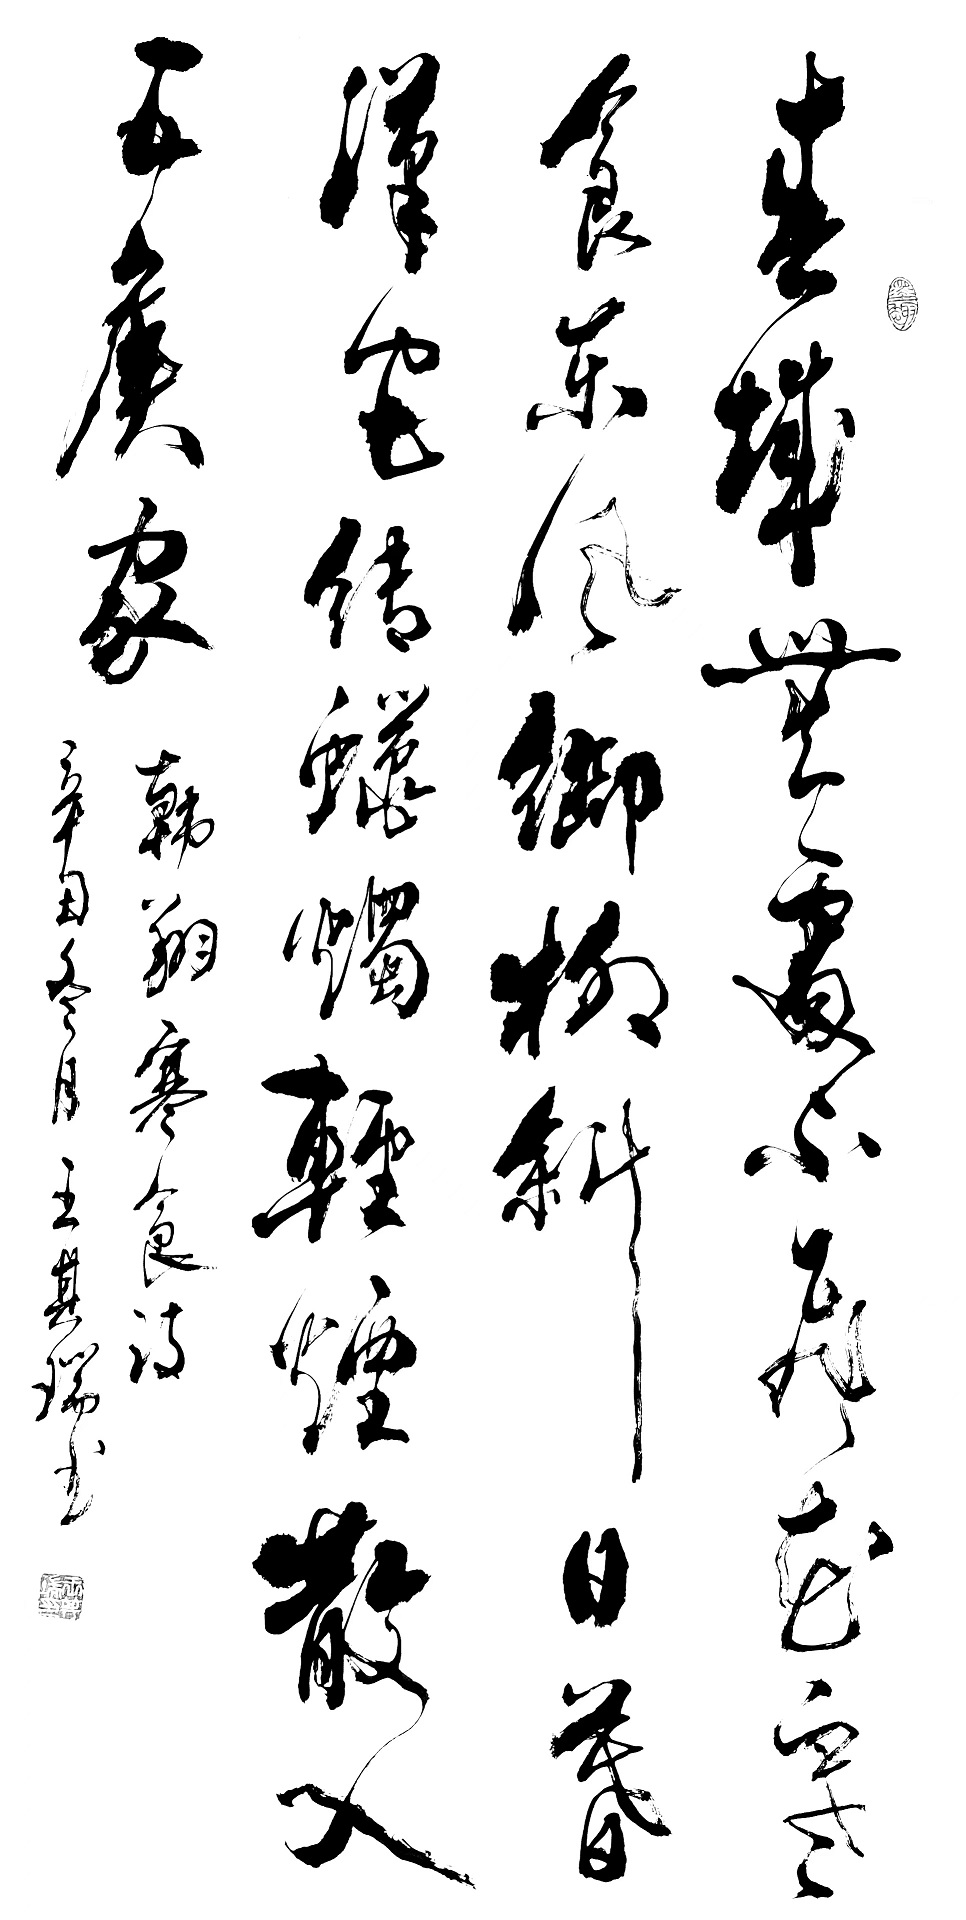 春城無處不飛花寒
食東風御柳斜日暮
漢宮傳蠟燭輕煙散入
五侯家
韓翔寒食詩
辛酉冬月王其瑞书